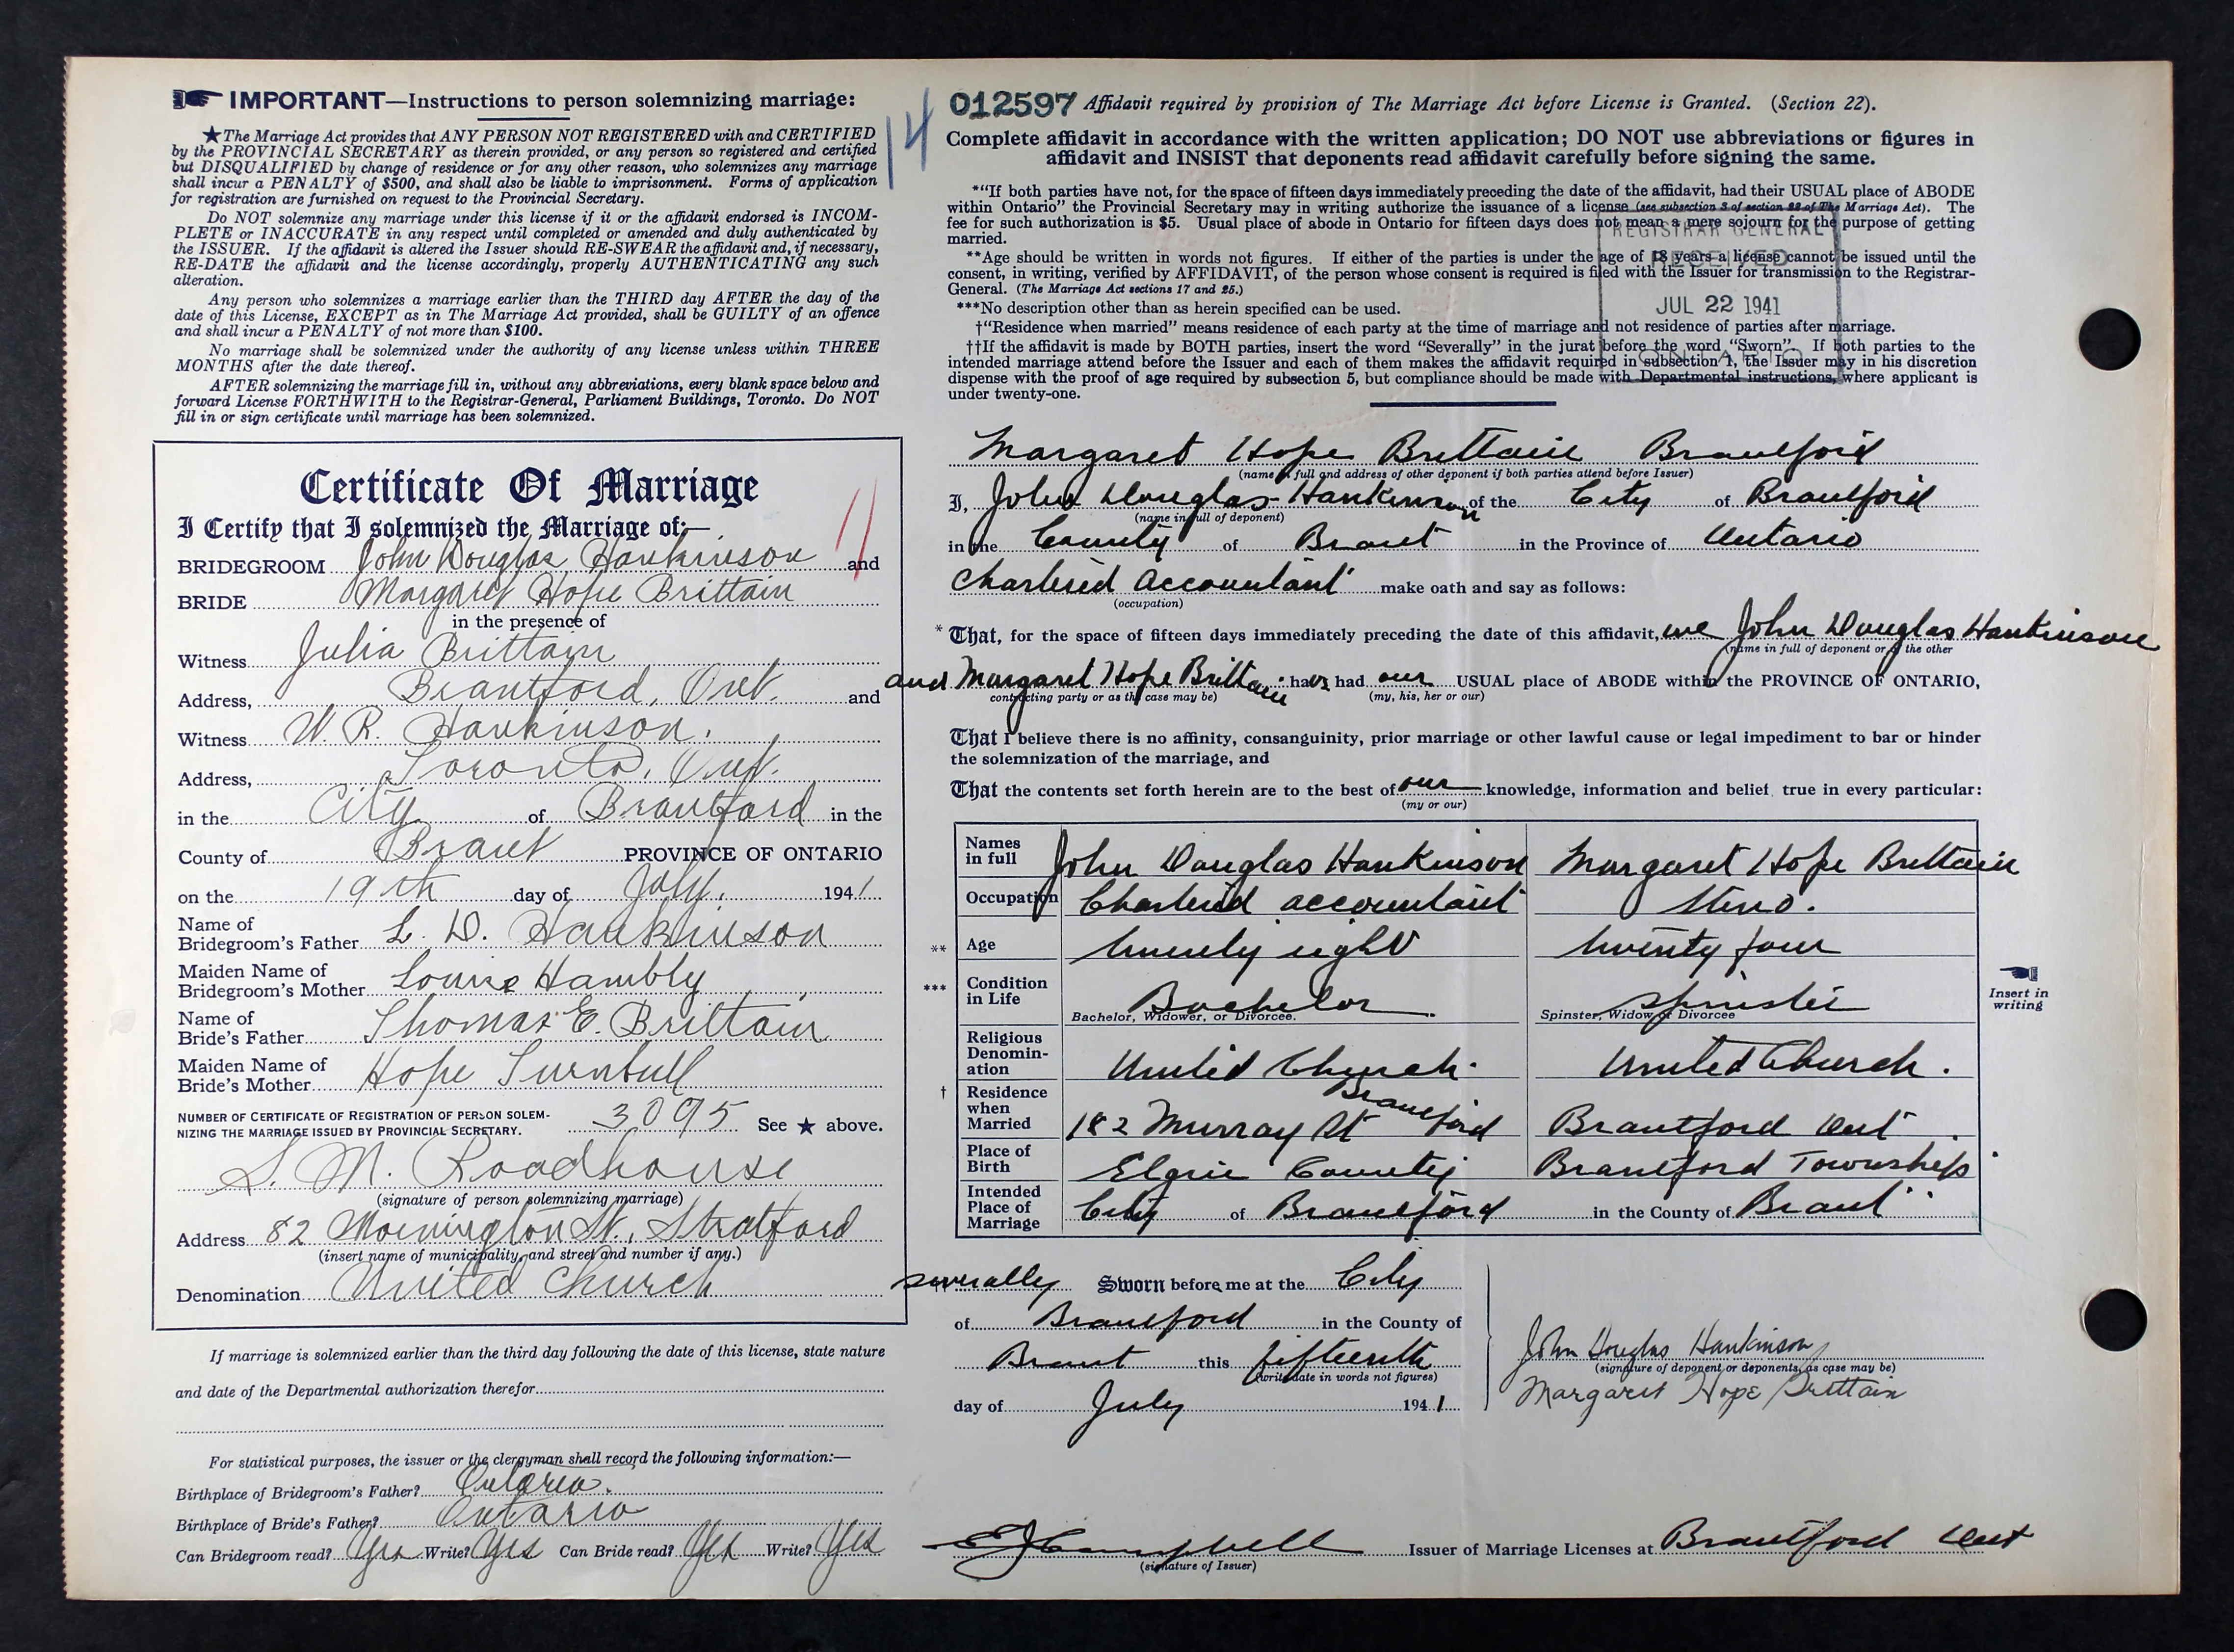 IMPORTANT—Instructions to person solemnizing marriage:
★The Marriage Act provides that ANY PERSON NOT REGISTERED with and CERTIFIED
by the PROVINCIAL SECRETARY as therein provided, or any person so registered and certified
but DISQUALIFIED by change of residence or for any other reason, who solemnizes any marriage
shall incur a PENALTY of $500, and shall also be liable to imprisonment. Forms of application
for registration are furnished on request to the Provincial Secretary.
Do NOT solemnize any marriage under this license if it or the affidavit endorsed is INCOM-
PLETE or INACCURATE in any respect until completed or amended and duly authenticated by
the ISSUER. If the affidavit is altered the Issuer should RE-SWEAR the affidavit and, if necessary,
RE-DATE the affidavit and the license accordingly, properly AUTHENTICATING any such
alteration.
Any person who solemnizes a marriage earlier than the THIRD day AFTER the day of the
date of this License, EXCEPT as in The Marriage Act provided, shall be GUILTY of an offence
and shall incur a PENALTY of not more than $100.
No marriage shall be solemnized under the authority of any license unless within THREE
MONTHS after the date thereof.
AFTER solemnizing the marriage fill in, without any abbreviations, every blank space below and
forward License FORTHWITH to the Registrar-General, Parliament Buildings, Toronto. Do NOT
fill in or sign certificate until marriage has been solemnized.
Certificate Of Marriage
I Certify that I solemnized the Marriage of:—
11
BRIDEGROOM John Douglas Hankinson and
BRIDE Margaret Hope Brittain
in the presence of
Witness Julia Brittain
Address, Brantford, Ont. and
Witness W. R. Hankinson.
Address, Toronto, Ont.
in the City of Brantford in the
County of Brant PROVINCE OF ONTARIO
on the 19th day of July, 1941.
Name of
Bridegroom's Father L. D. Hankinson
Maiden Name of
Bridegroom's Mother Louise Hambly
Name of
Bride's Father Thomas E. Brittain
Maiden Name of
Bride's Mother Hope Turnbull
NUMBER OF CERTIFICATE OF REGISTRATION OF PERSON SOLEM-
NIZING THE MARRIAGE ISSUED BY PROVINCIAL SECRETARY. 3095 See ★ above.
S. M. Roadhouse
(signature of person solemnizing marriage)
Address 82 Mornington St., Stratford
(insert name of municipality, and street and number if any.)
Denomination United Church
If marriage is solemnized earlier than the third day following the date of this license, state nature
and date of the Departmental authorization therefor
For statistical purposes, the issuer or the clergyman shall record the following information:—
Birthplace of Bridegroom's Father? Ontario.
Birthplace of Bride's Father? Ontario
Can Bridegroom read? Yes Write? Yes Can Bride read? Yes Write? Yes
14
012597 Affidavit required by provision of The Marriage Act before License is Granted. (Section 22).
Complete affidavit in accordance with the written application; DO NOT use abbreviations or figures in
affidavit and INSIST that deponents read affidavit carefully before signing the same.
*"If both parties have not, for the space of fifteen days immediately preceding the date of the affidavit, had their USUAL place of ABODE
within Ontario" the Provincial Secretary may in writing authorize the issuance of a license (see subsection 3 of section 22 of The Marriage Act). The
fee for such authorization is $5. Usual place of abode in Ontario for fifteen days does not mean a mere sojourn for the purpose of getting
married.
**Age should be written in words not figures. If either of the parties is under the age of 18 years a license cannot be issued until the
consent, in writing, verified by AFFIDAVIT, of the person whose consent is required is filed with the Issuer for transmission to the Registrar-
General. (The Marriage Act sections 17 and 25.)
***No description other than as herein specified can be used.
†"Residence when married" means residence of each party at the time of marriage and not residence of parties after marriage.
††If the affidavit is made by BOTH parties, insert the word "Severally" in the jurat before the word "Sworn". If both parties to the
intended marriage attend before the Issuer and each of them makes the affidavit required in subsection 1, the Issuer may in his discretion
dispense with the proof of age required by subsection 5, but compliance should be made with Departmental instructions, where applicant is
under twenty-one.
REGISTRAR GENERAL
RECEIVED
JUL 22 1941
ONTARIO
Margaret Hope Brittain Brantford
(name in full and address of other deponent if both parties attend before Issuer)
I, John Douglas Hankinson of the City of Brantford
(name in full of deponent)
in the County of Brant in the Province of Ontario
Chartered Accountant make oath and say as follows:
(occupation)
* That, for the space of fifteen days immediately preceding the date of this affidavit, we John Douglas Hankinson
(name in full of deponent or of the other
and Margaret Hope Brittain have had our USUAL place of ABODE within the PROVINCE OF ONTARIO,
contracting party or as the case may be) (my, his, her or our)
That I believe there is no affinity, consanguinity, prior marriage or other lawful cause or legal impediment to bar or hinder
the solemnization of the marriage, and
That the contents set forth herein are to the best of our knowledge, information and belief true in every particular:
(my or our)
Names
in full John Douglas Hankinson Margaret Hope Brittain
Occupation Chartered accountant Steno.
** Age twenty eight twenty four
*** Condition
in Life Bachelor Spinster
Bachelor, Widower, or Divorcee. Spinster, Widow or Divorcee
Insert in
writing
Religious
Denomin-
ation United Church. United Church.
† Residence
when
Married 182 Murray St Brantford Brantford Ont.
Place of
Birth Elgin County Brantford Township
Intended
Place of
Marriage City of Brantford in the County of Brant
†† severally Sworn before me at the City
of Brantford in the County of
Brant this fifteenth
(write date in words not figures)
day of July 1941
John Douglas Hankinson
(signature of deponent or deponents, as case may be)
Margaret Hope Brittain
E J Campbell Issuer of Marriage Licenses at Brantford Ont
(signature of Issuer)